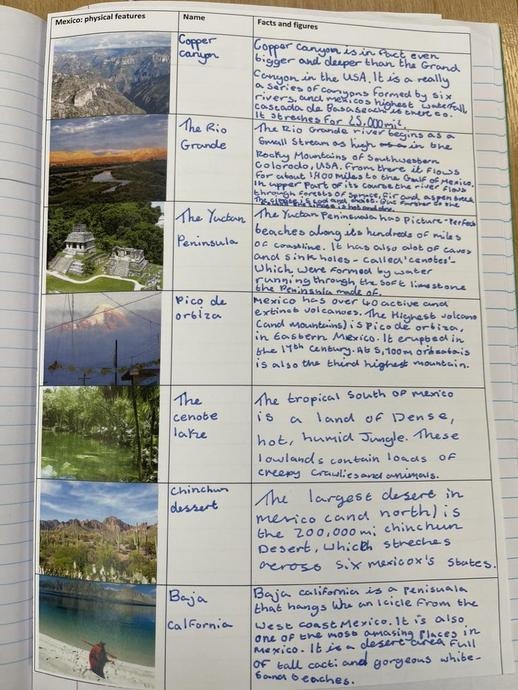 Mexico: physical features
Name
Facts and figures
Copper
canyon
Copper canyon is in fact even
bigger and deeper than the Grand
Canyon in the USA. It is a really
a series of canyons formed by six
rivers, and mexicos highest waterfall
cascada de Basaseachi is there so.
It streches for 25,000 mi²
The Rio
Grande
The Rio Grande river begins as a
Small Stream as high in the
Rocky Mountains of Southwestern
Colorodo, USA. From there it flows
for about 1,900 miles to the Gulf of Mexico.
In upper part of its course the river flows
through forests of spruce, fir and aspen trees
The Yuctan
Peninsula
The Yuctan Peninsula has Picture-Perfect
beaches along its hundreds of miles
of coastline. It has also a lot of caves
and sink holes - called 'cenotes'-
Which were formed by water
running through the soft limestone
the Peninsula made of.
Pico de
orbiza
Mexico has over 40 active and
extinct volcanoes. The Highest volcano
(and mountains) is Pico de orbiza,
in Eastern Mexico. It erupted in
the 17th Century. At 5,700m
is also the third highest mountain.
The
cenote
lake
The tropical South of Mexico
is a land of Dense,
hot, humid Jungle. These
lowlands contain loads of
creepy Crawlies and animals.
Chinchun
dessert
The largest desert in
mexico (and north) is
the 200,000 mi chinchun
Desert, Which streches
across six mexicox's States.
Baja
calfornia
Baja california is a Penisuala
that hangs like an icicle from the
West coast Mexico. It is also
one of the most amasing Places in
Mexico. It is a desert area full
of tall cacti and gorgeous white-
Sand beaches.